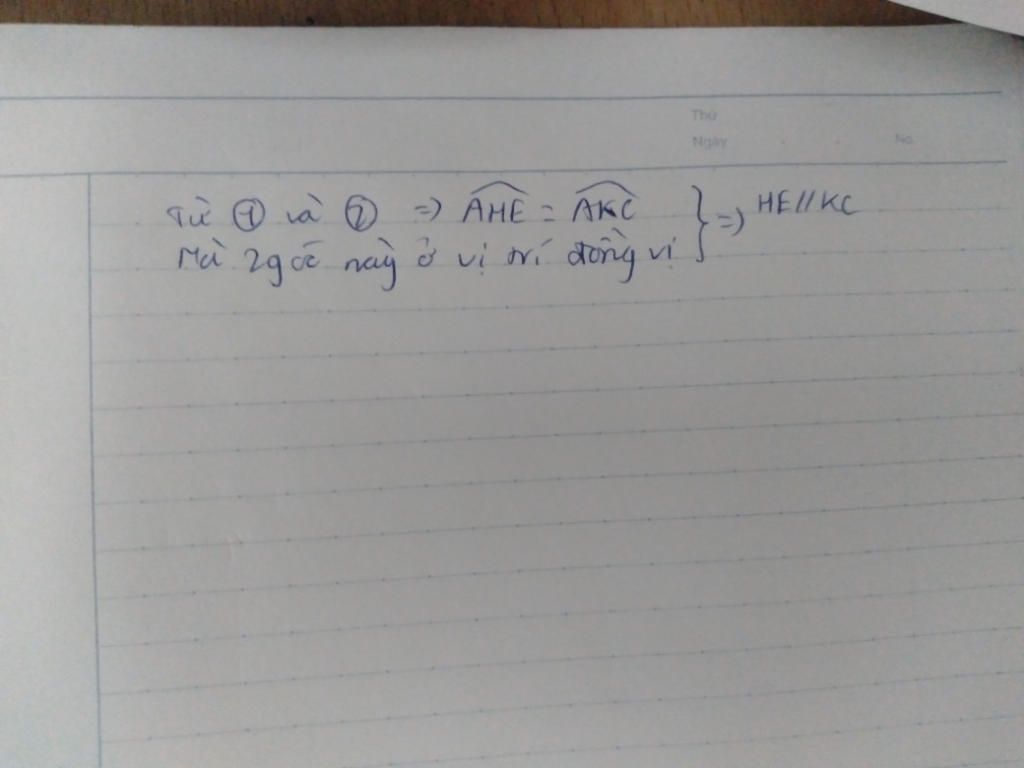 Thứ
Ngày No.
Từ ① và ② => AHE = AKC } => HE//KC
Mà 2 góc này ở vị trí đồng vị